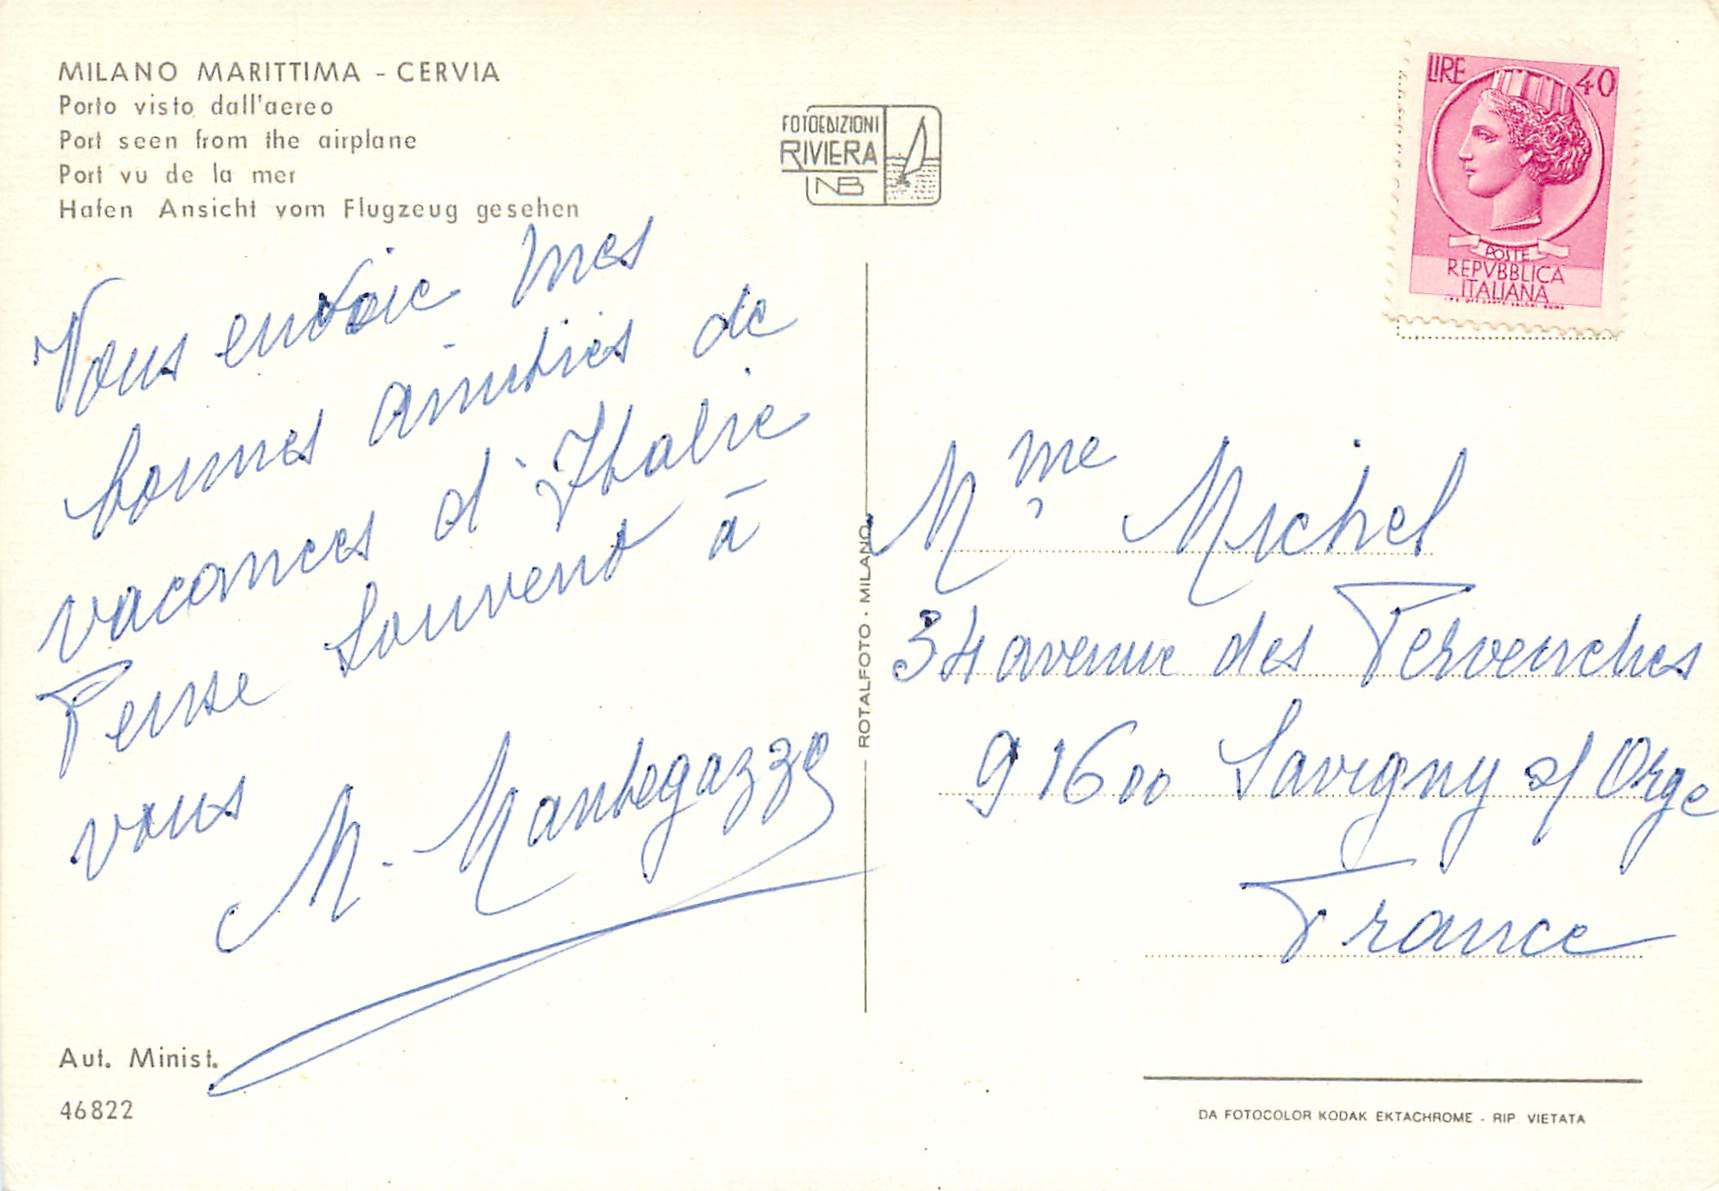 MILANO MARITTIMA - CERVIA
Porto visto dall'aereo
Port seen from the airplane
Port vu de la mer
Hafen Ansicht vom Flugzeug gesehen
FOTOEDIZIONI
RIVIERA
LIRE 40
POSTE
REPVBBLICA
ITALIANA
Vous envoie mes
bonnes amitiés de
vacances d'Italie
Pense souvent à
vous
M. Mantegazza
ROTALFOTO - MILANO
Mme Michel
34 avenue des Pervenches
91600 Savigny s/ Orge
France
Aut. Minist.
46822
DA FOTOCOLOR KODAK EKTACHROME - RIP. VIETATA